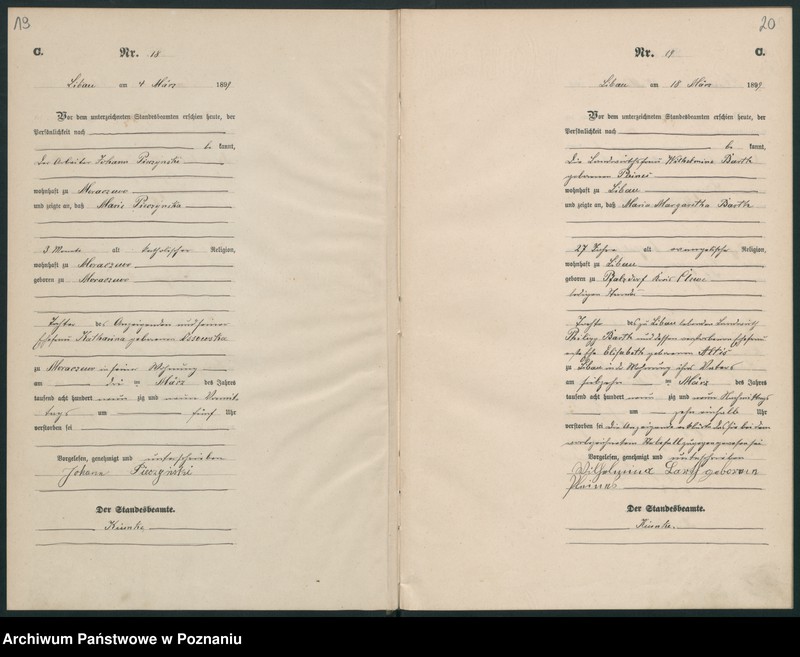 19
C.
Nr. 18
Libau am 4 März 1899
Vor dem unterzeichneten Standesbeamten erschien heute, der
Persönlichkeit nach
be kannt,
der Arbeiter Johann
wohnhaft zu
und zeigte an, daß Marie
3 Monate alt katholischer Religion,
wohnhaft zu
geboren zu
Tochter des Anzeigenden und seiner
Ehefrau Katharina geborenen
zu in seiner Wohnung
am drei ten März des Jahres
tausend acht hundert neun zig und neun Vormit
tags um fünf Uhr
verstorben sei
Vorgelesen, genehmigt und unterschrieben
Johann
Der Standesbeamte.
20
Nr. 19
C.
Libau am 18 März 1899
Vor dem unterzeichneten Standesbeamten erschien heute, der
Persönlichkeit nach
be kannt,
die Landwirthsfrau Wilhelmine Barth
geborenen
wohnhaft zu Libau
und zeigte an, daß Maria Margaretha Barth
27 Jahre alt evangelische Religion,
wohnhaft zu Libau
geboren zu Pfalzdorf Kreis Cleve
ledigen Standes
Tochter des zu Libau lebenden Landwirth
Philipp Barth und dessen verstorbenen Ehefrau
Elisabeth geborenen
zu Libau in der Wohnung ihres Vaters
am siebzehn ten März des Jahres
tausend acht hundert neun zig und neun Nachmittags
um zehn einhalb Uhr
verstorben sei die Anzeigende erklärte daß sie bei dem
vorbezeichneten Sterbefall zugegen gewesen sei
Vorgelesen, genehmigt und unterschrieben
geborene
Der Standesbeamte.
Archiwum Państwowe w Poznaniu